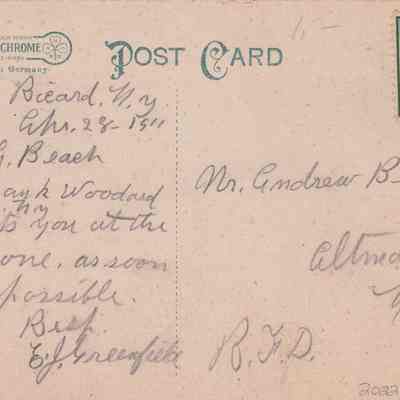 CHROME
Germany
POST CARD
1.-
Beeard, N.y
Apr. 28-1911
G. Beach
ank Woodard
Ny
ts you at the
one, as soon
possible.
Resp.
E.J. Greenfield
Mr. Andrew B
Altma
R.F.D.
2022